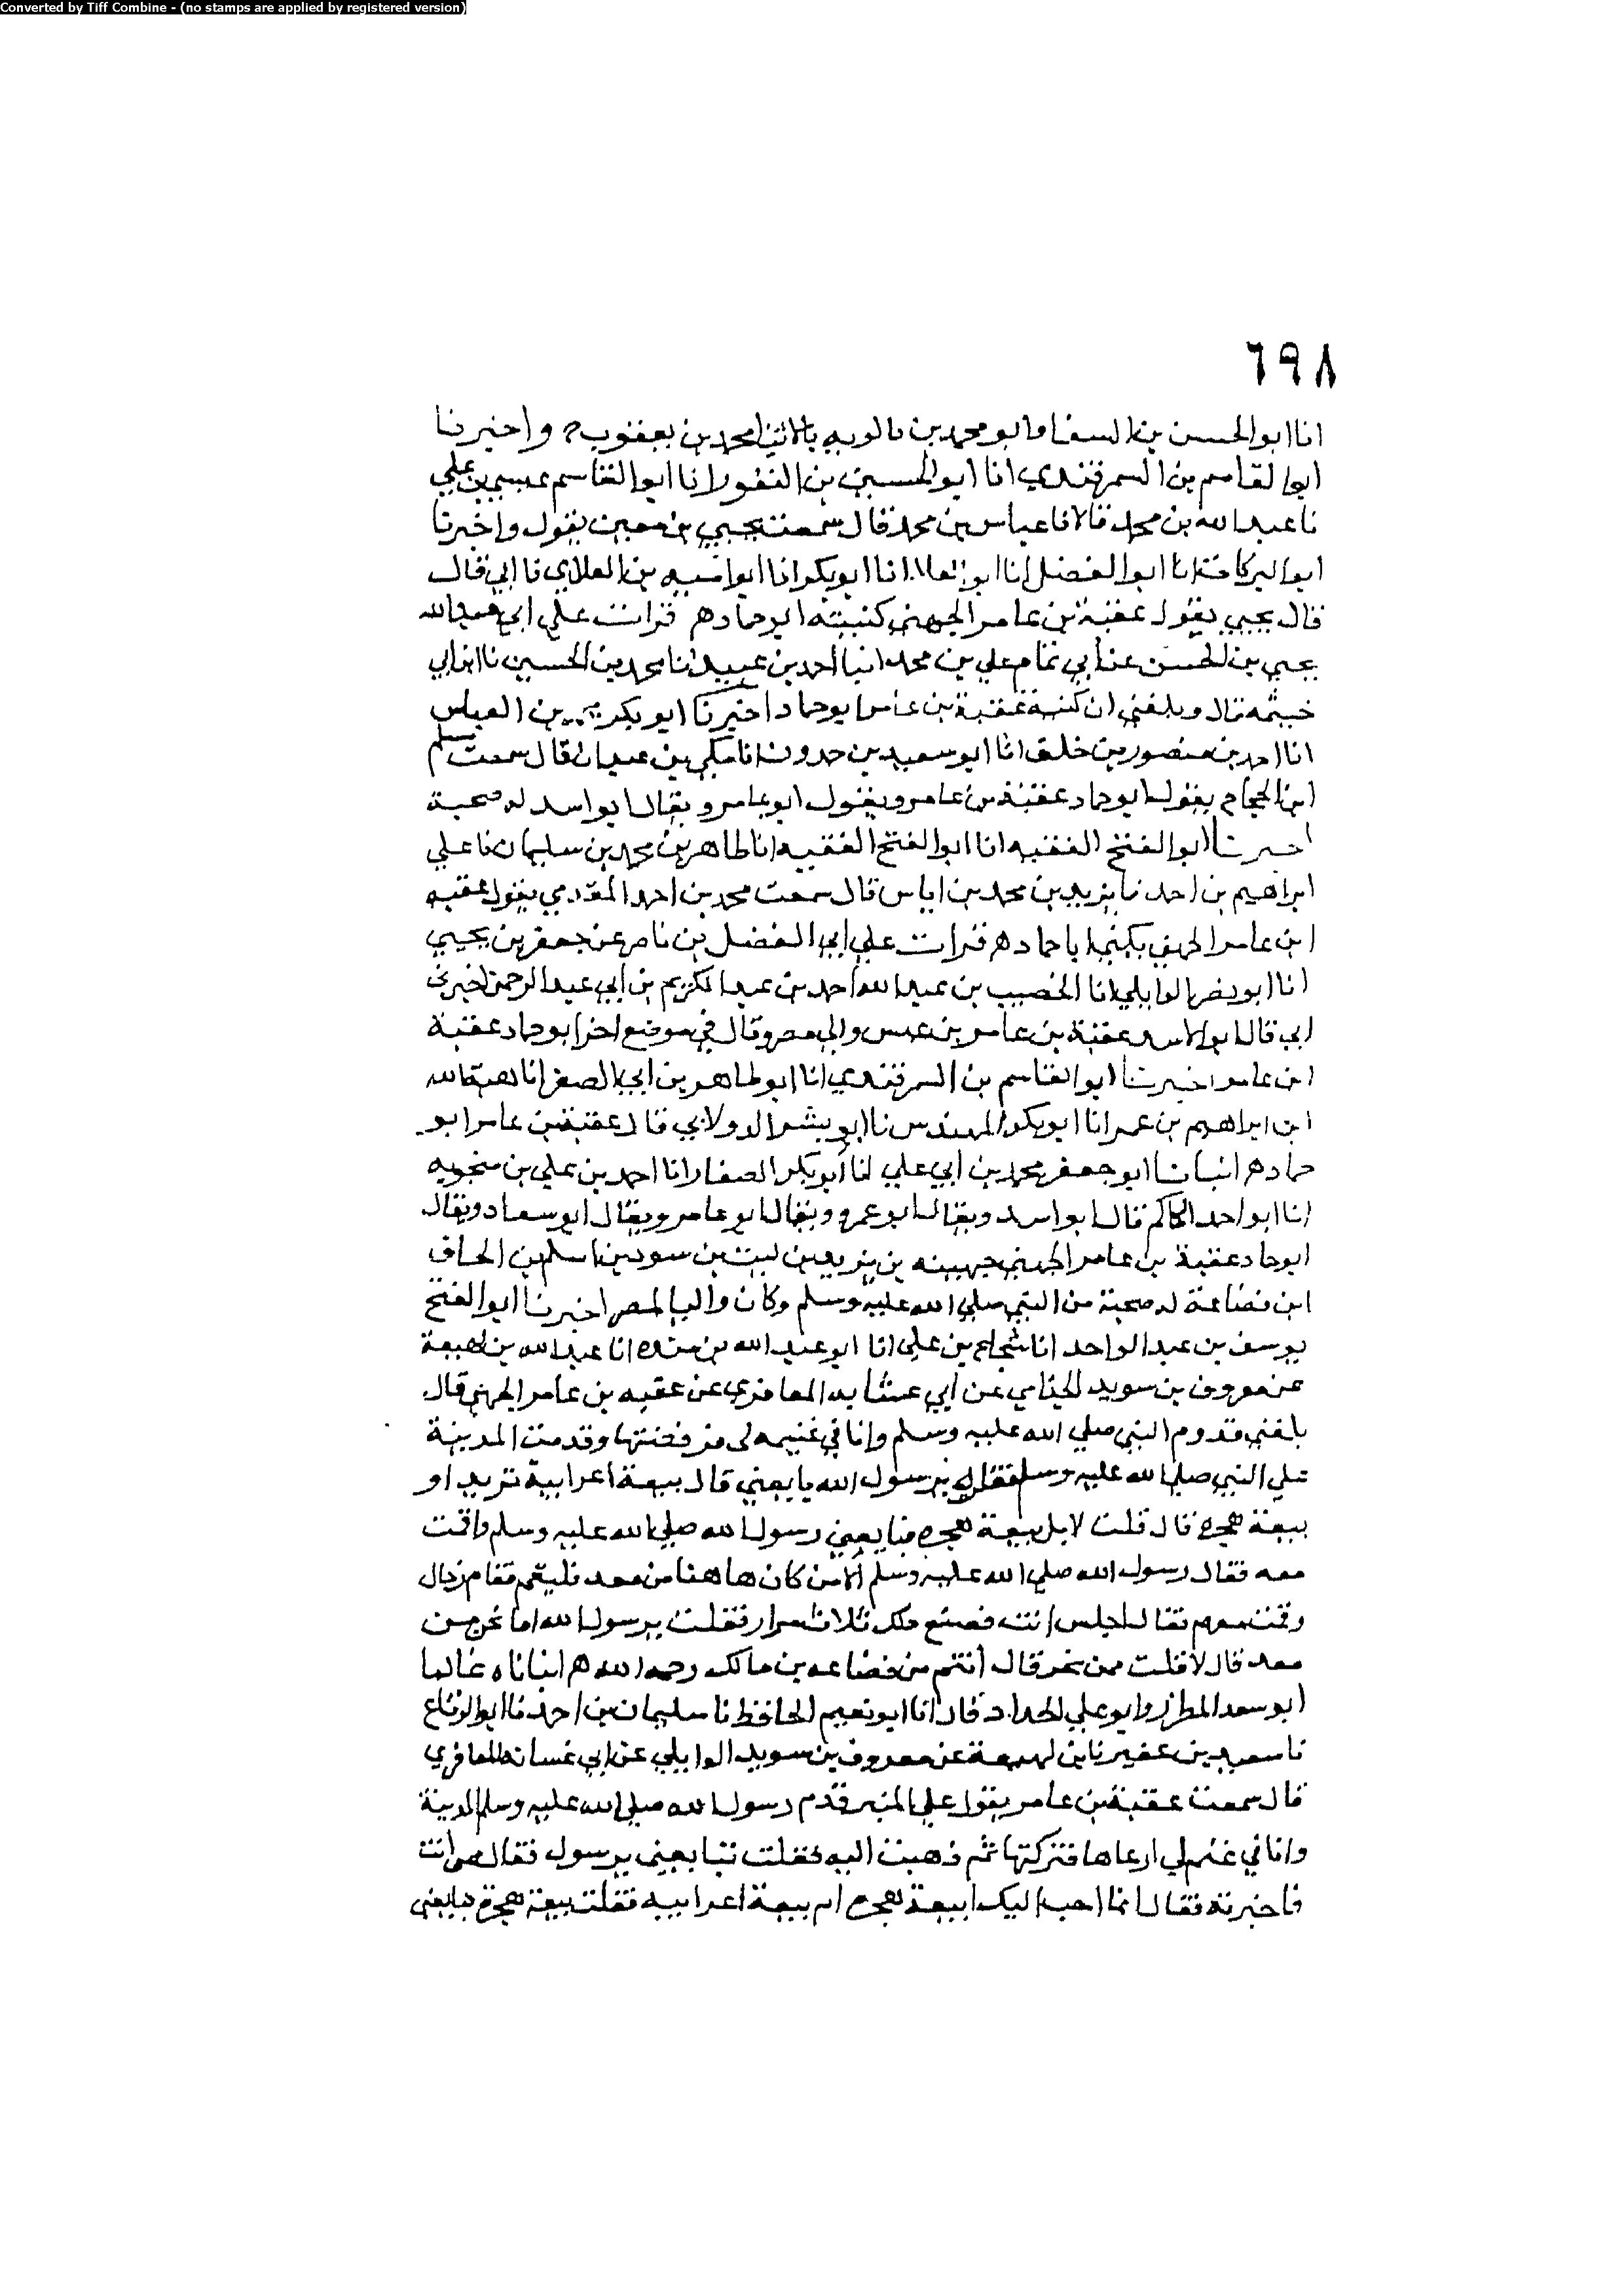 Converted by Tiff Combine - (no stamps are applied by registered version)
٦٩٨
انا ابو الحسن بن السقا وابو محمد بن بالويه قالا ثنا محمد بن يعقوب ح واخبرنا
ابو القاسم بن السمرقندي انا ابو الحسين بن النقور انا ابو القاسم عيسى بن علي
نا عبد الله بن محمد قالا نا عباس بن محمد قال سمعت يحيي بن معين يقول واخبرنا
ابو البركات انا ابو الفضل انا ابو العلا انا ابو بكر انا ابو امية بن الغلابي نا ابي قال
قال يحيي يقول عقبة بن عامر الجهني كنيته ابو حماده قرات علي ابي عبد الله
يحيي بن الحسن عن ابي تمام علي بن محمد انبا احمد بن عبيد انا محمد بن الحسين نا ابن ابي
خيثمه قال وبلغني ان كنية عقبة بن عامر ابو حماد اخبرنا ابو بكر بن العباس
انا احمد بن منصور بن خلف انا ابو سعيد بن حمدون انا مكي بن عبدان قال سمعت مسلم
ابن الحجاج يقول ابو حماد عقبة بن عامر ويقول ابو عامر ويقال ابو اسد له صحبة
اخبرنا ابو الفتح الفقيه انا ابو الفتح الفقيه انا طاهر بن محمد بن سليمان نا علي
ابراهيم بن احمد نا يزيد بن محمد بن اياس قال سمعت محمد بن احمد المقدمي يقول عقبه
ابن عامر الجهني يكني ابا حماده قرات علي ابي الفضل بن ناصر عن جعفر بن يحيي
انا ابو نصر الوايلي انا الخصيب بن عبد الله احمد بن عبد الكريم بن ابي عبد الرحمن اخبرني
ابي قال ابو الاسد عقبة بن عامر بن عبس والي مصر وقال في موضع اخر ابو حماد عقبة
ابن عامر اخبرنا ابو القاسم بن السمرقندي انا ابو طاهر بن ابي الصقر انا هبة الله
ابن ابراهيم بن عمر انا ابو بكر المهندس نا ابو بشر الدولابي قال عقبة بن عامر ابو
حماده انبانا ابو جعفر محمد بن ابي علي انا ابو بكر الصفار انا احمد بن علي بن منجويه
انا ابو احمد الحاكم قال ابو اسد ويقال ابو عمرو ويقال ابو عامر ويقال ابو سعاد ويقال
ابو حماد عقبة بن عامر الجهني جهينه بن يزيد بن ليث بن سود بن اسلم بن الحاف
ابن قضاعة له صحبة من النبي صلي الله عليه وسلم وكان واليا لمصر اخبرنا ابو الفتح
يوسف بن عبد الواحد انا شجاع بن علي انا ابو عبد الله بن منده انا عبد الله بن لهيعة
عن معروف بن سويد الجذامي عن ابي عشانه المعافري عن عقبه بن عامر الجهني قال
بلغني قدوم النبي صلي الله عليه وسلم وانا في غنيمه لي فرفضتها وقدمت المدينة
علي النبي صلي الله عليه وسلم فقلت يرسول الله بايعني قال بيعة اعرابية تريد او
بيعة هجره قال قلت لا بل بيعة هجره فبايعني رسول الله صلي الله عليه وسلم واقمت
معه فقال رسول الله صلي الله عليه وسلم الا من كان هاهنا من معد فليقم فقام رجال
وقمت معهم فقال اجلس انت فصنع ذلك ثلاث مرار فقلت يرسول الله اما نحن من
معد قال لا قلت ممن نحن قال انتم من قضاعه بن مالك رحمه الله ه انباناه عاليا
ابو سعد المطرز وابو علي الحداد قال انا ابو نعيم الحافظ نا سليمان بن احمد نا ابو الزنباع
نا سعيد بن عفير نا بن لهيعة عن معروف بن سويد الوايلي عن ابي غسانه المعافري
قال سمعت عقبة بن عامر يقول علي المنبر قدم رسول الله صلي الله عليه وسلم المدينة
وانا في غنم لي ارعاها فتركتها ثم ذهبت اليه فقلت تبايعني يرسول فقال من انت
فاخبرته فقال انما احب اليك ابيعة هجره ام بيعة اعرابيه فقلت بيعة هجرة فبايعني